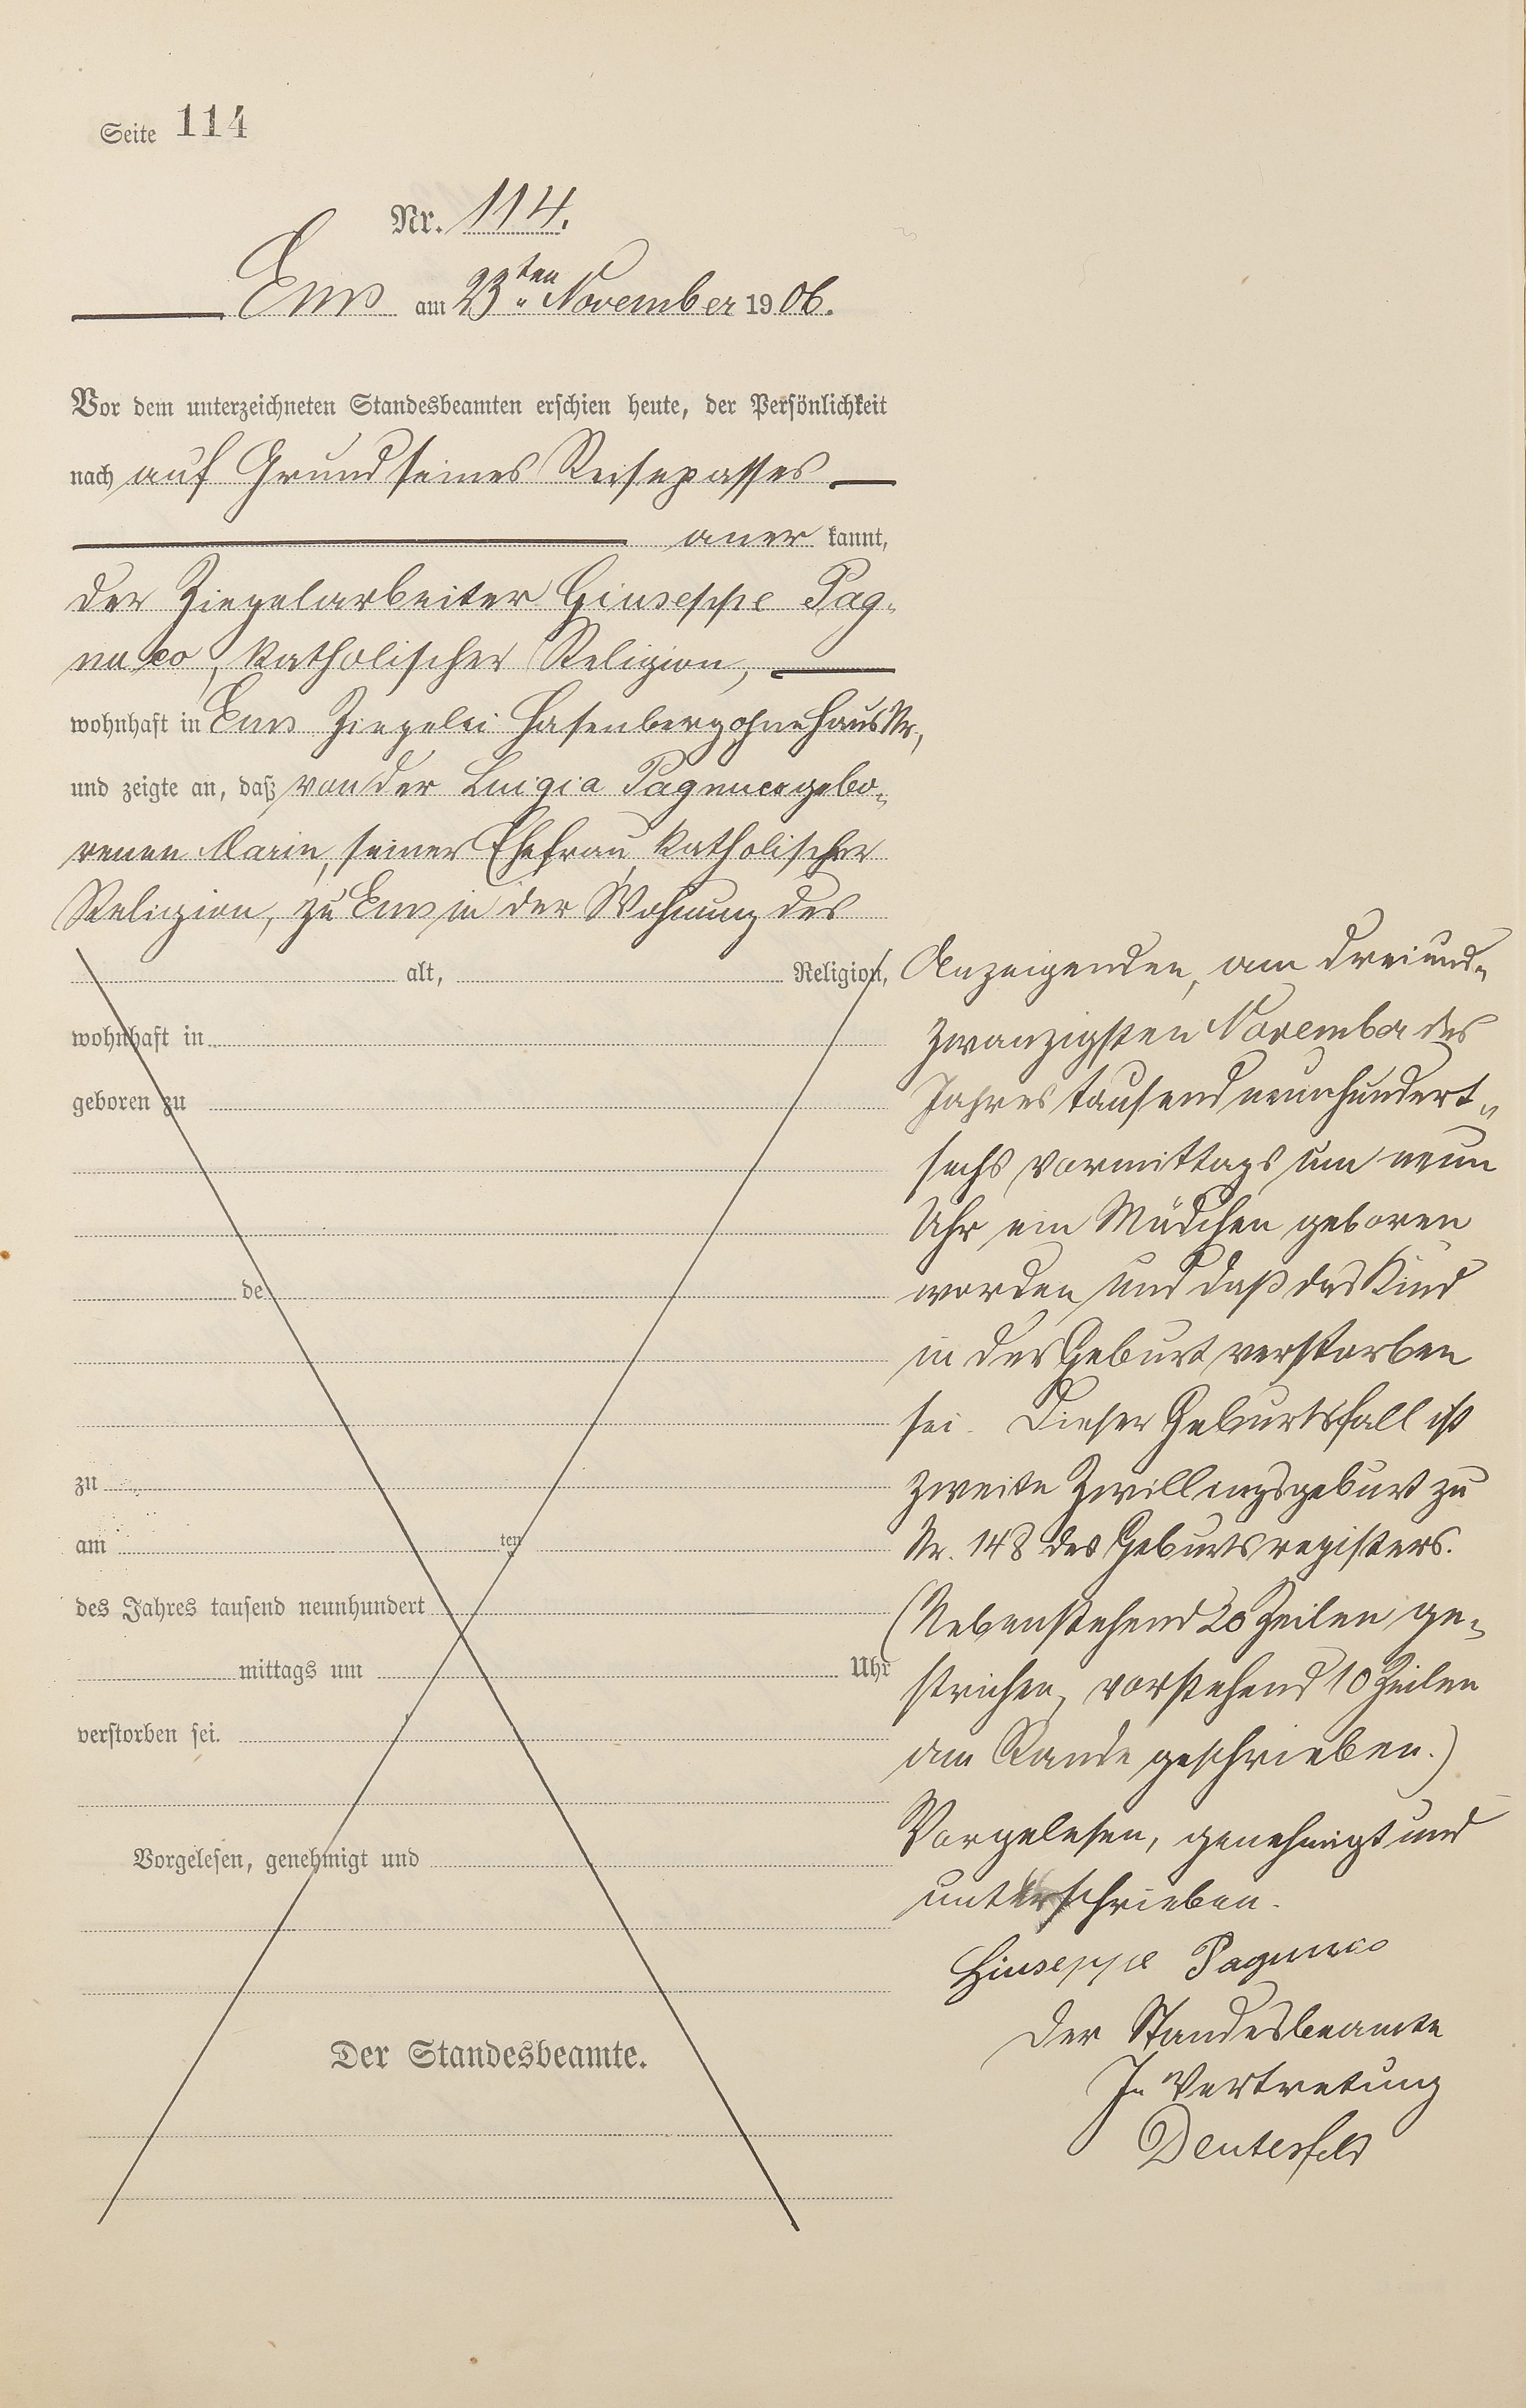 Seite 114
Nr. 114.
Ems am 23ten November 1906.
Vor dem unterzeichneten Standesbeamten erschien heute, der Persönlichkeit
nach auf Grund seines Reisepasses
aner kannt,
der Ziegelarbeiter Giuseppe Pag-
nuco, katholischer Religion,
wohnhaft in Ems Ziegelei Hasenberg ohne Haus Nr,
und zeigte an, daß von der Luigia Pagnuco gebo-
renen Marin, seiner Ehefrau katholischer
Religion, zu Ems in der Wohnung des
alt, Religion,
wohnhaft in
geboren zu
de
zu
am ten
des Jahres tausend neunhundert
mittags um Uhr
verstorben sei.
Vorgelesen, genehmigt und
Der Standesbeamte.
Anzeigenden, am dreiund-
zwanzigsten November des
Jahres tausend neunhundert-
sechs vormittags um neun
Uhr ein Mädchen geboren
worden und daß das Kind
in der Geburt verstorben
sei. Dieser Geburtsfall ist
zweite Zwillingsgeburt zu
Nr. 148 des Geburtsregisters.
(Nebenstehend 20 Zeilen ge-
strichen, vorstehend 10 Zeilen
am Rande geschrieben.)
Vorgelesen, genehmigt und
unterschrieben.
Giuseppe Pagnuco
Der Standesbeamte
In Vertretung